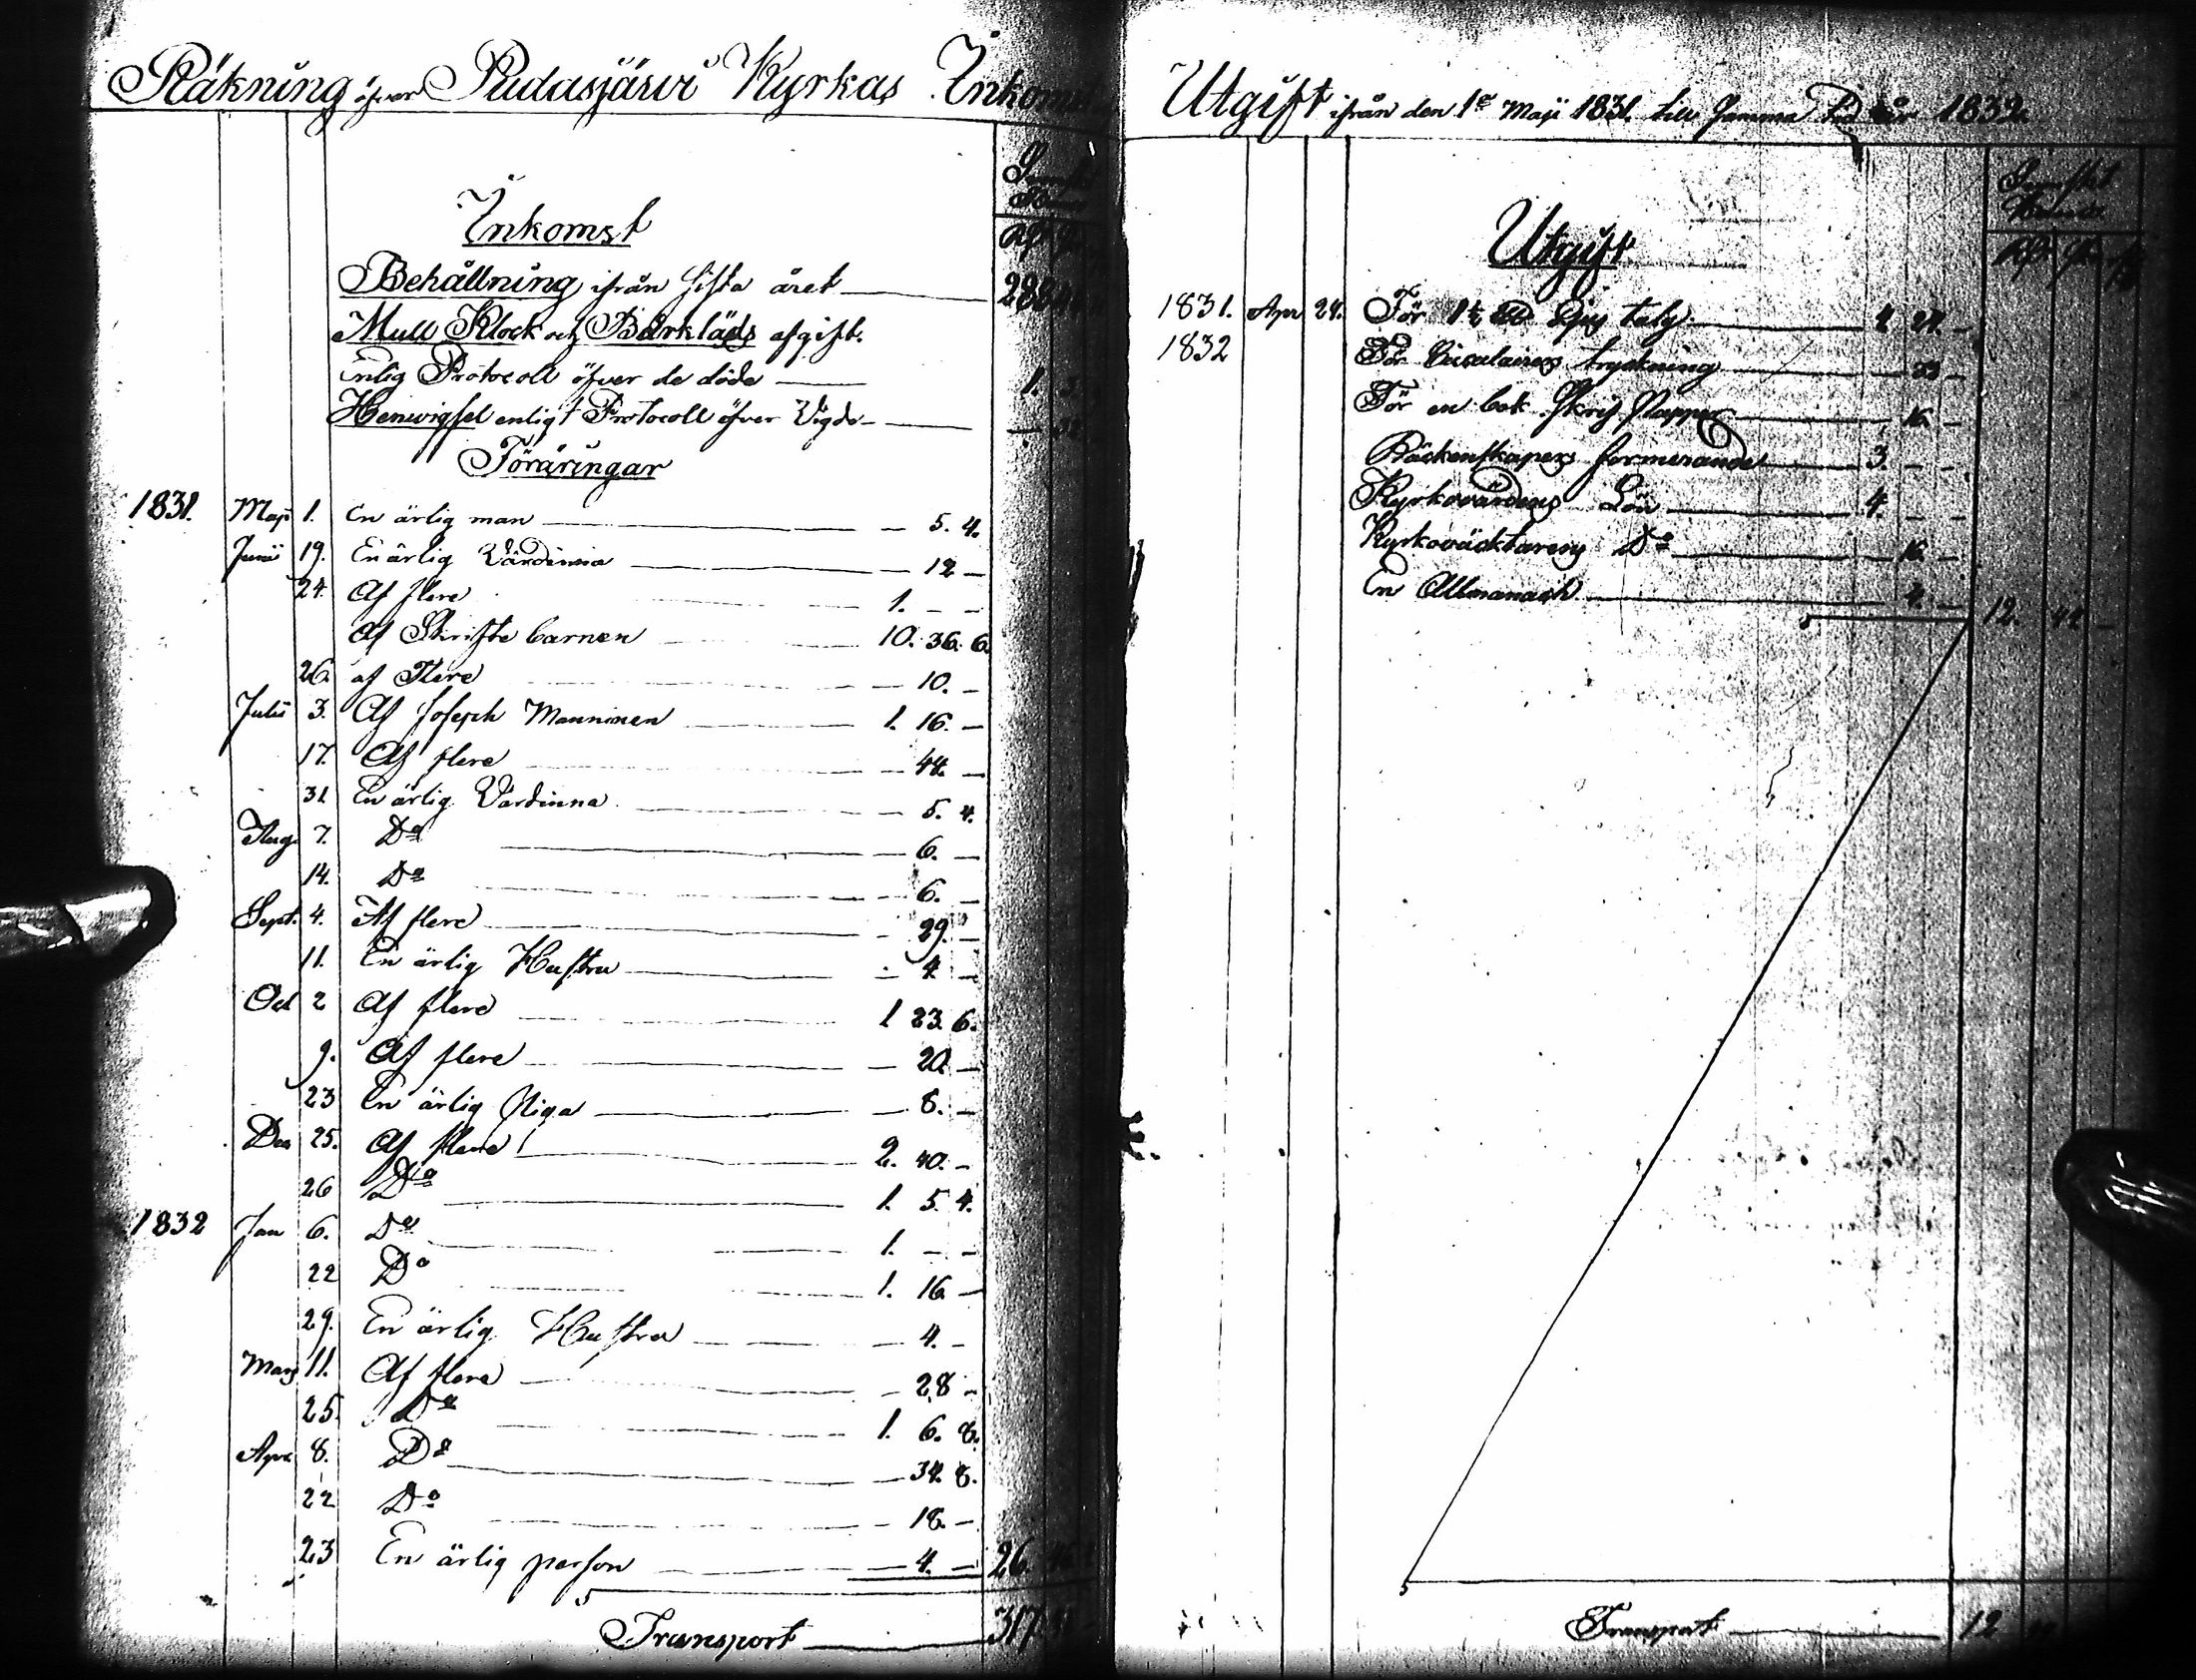 Räkning öfver Pudasjärvi Kyrkas Inkomst
Inkomst
Behållning ifrån sista året
Mull Klock och Bårkläds afgift.
Enlig Protocoll öfver de döde — 1. 3
Hemvigsel enligt Protocoll öfver Vigde —
Föräringar
1831. Maji 1. En ärlig man — 5. 4.
Junii 19. En ärlig Värdinna — 12 —
24. Af flere 1. — —
Af Skriftebarnen — 10. 36. 6.
26. af Flere — 10. —
Julii 3. Af Joseph Manninen — 1. 16. —
17. Af flere — 44. —
31 En ärlig Värdinna — 5. 4.
Aug. 7. Do — 6. —
14. Do — 6. —
Sept. 4. Af flere — 29. —
11. En ärlig Hustru — 4 —
Oct 2 Af flere — 1 23. 6.
9. Af flere — 20. —
23 En ärlig Piga — 8. —
Dec 25. Af flere — 2. 40. —
26 Do — 1. 5. 4.
1832 Jan 6. Do — 1. — —
22 Do — 1. 16 —
29. En ärlig Hustru — 4. —
Mars 11. Af flere — 28 —
25. Do — 1. 6. 8.
Apr. 8. Do — 34. 8.
22 Do — 18. —
23 En ärlig person — 4. — 26.
Transport — 317.
Utgift ifrån den 1a Maji 1831. till samma tid år 1832.
Utgift
1831. Apr 24. För 1½ ljus talg — 24. —
1832 För Circulairers tryckning —
För en bok Skrif Papper — 16. —
Räckenskapers formerande — 3. — —
Kyrkovärdens Lön — 4. — —
Kyrkoväcktarens Do — 16 —
En Allmanach — 4. — 12.
Transport — 12